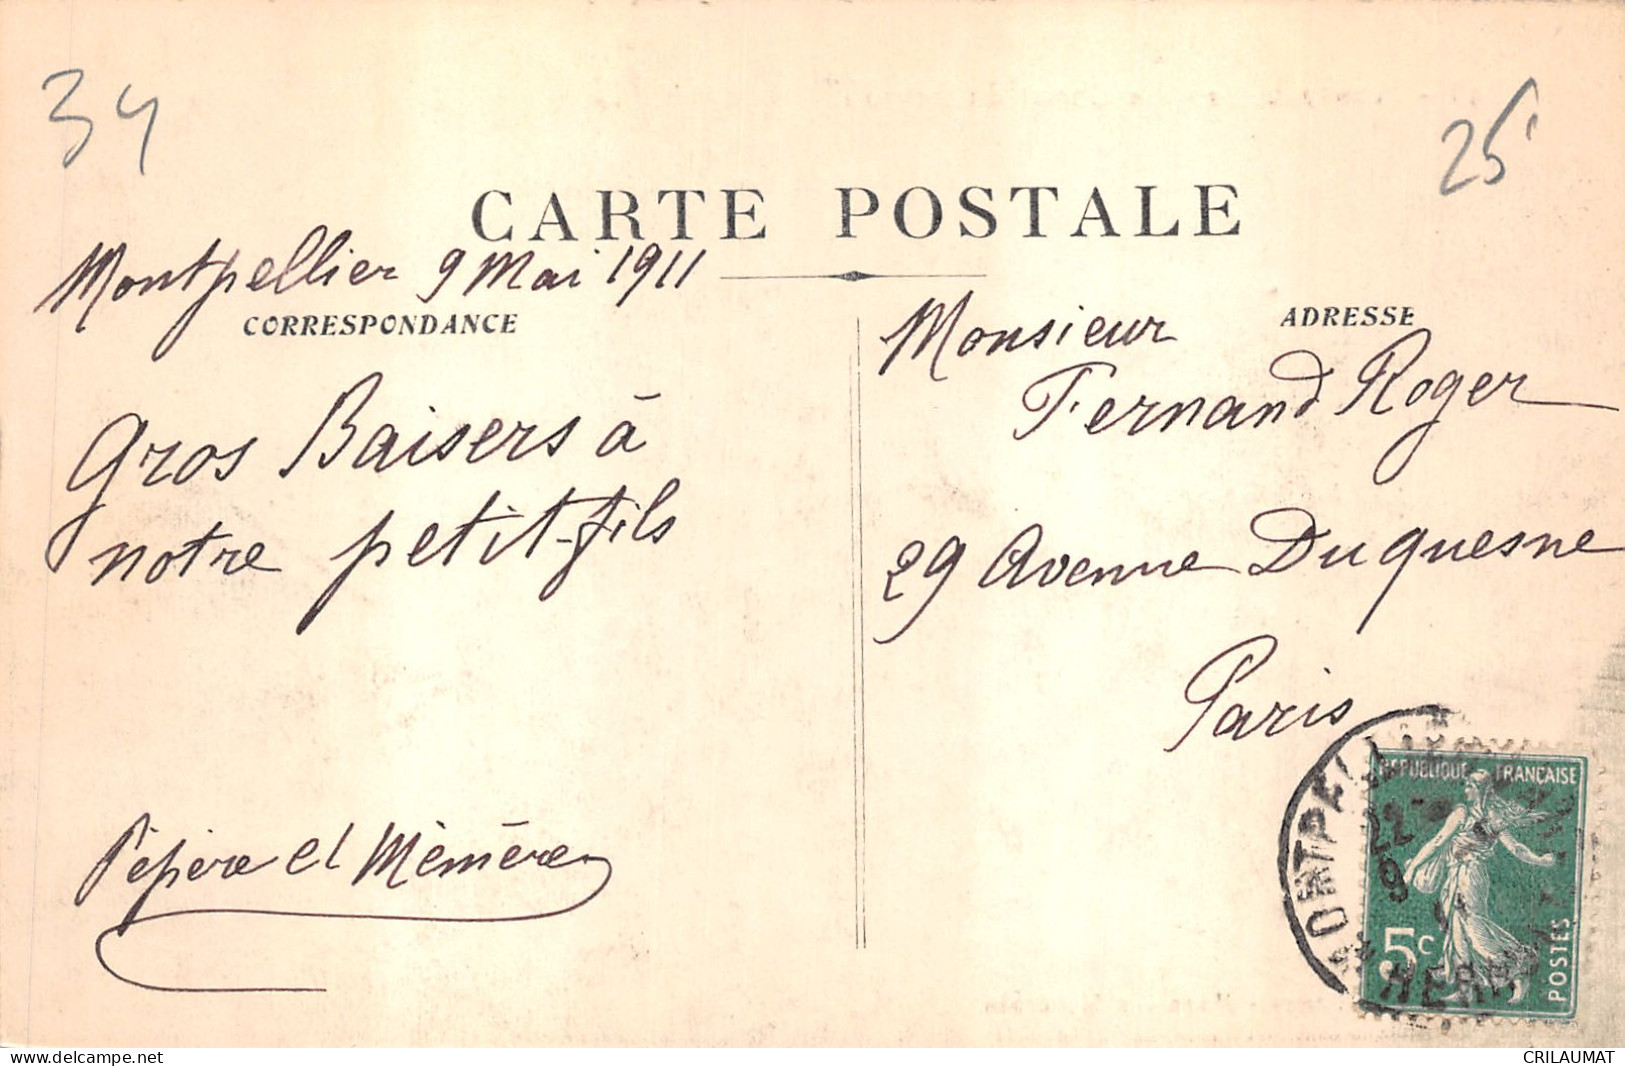 34
25
CARTE POSTALE
Montpellier 9 Mai 1911
CORRESPONDANCE
Gros Baisers à
notre petit-fils
Pépère et Mémère
ADRESSE
Monsieur
Fernand Roger
29 Avenue Duquesne
Paris
MONTPELLIER
22
9
HERAULT
REPUBLIQUE FRANÇAISE
5c
POSTES
delcampe.net
CRILAUMAT